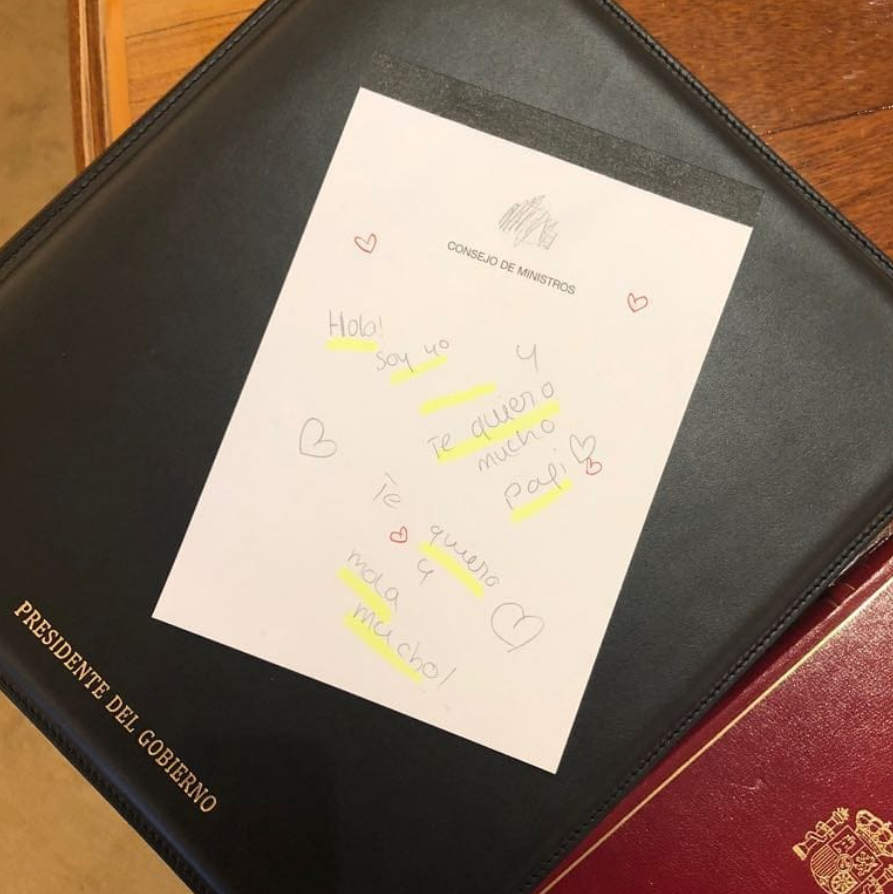 CONSEJO DE MINISTROS
Hola!
soy yo
y
Te quiero
mucho
papi
Te
quiero
y
mola
mucho!
PRESIDENTE DEL GOBIERNO